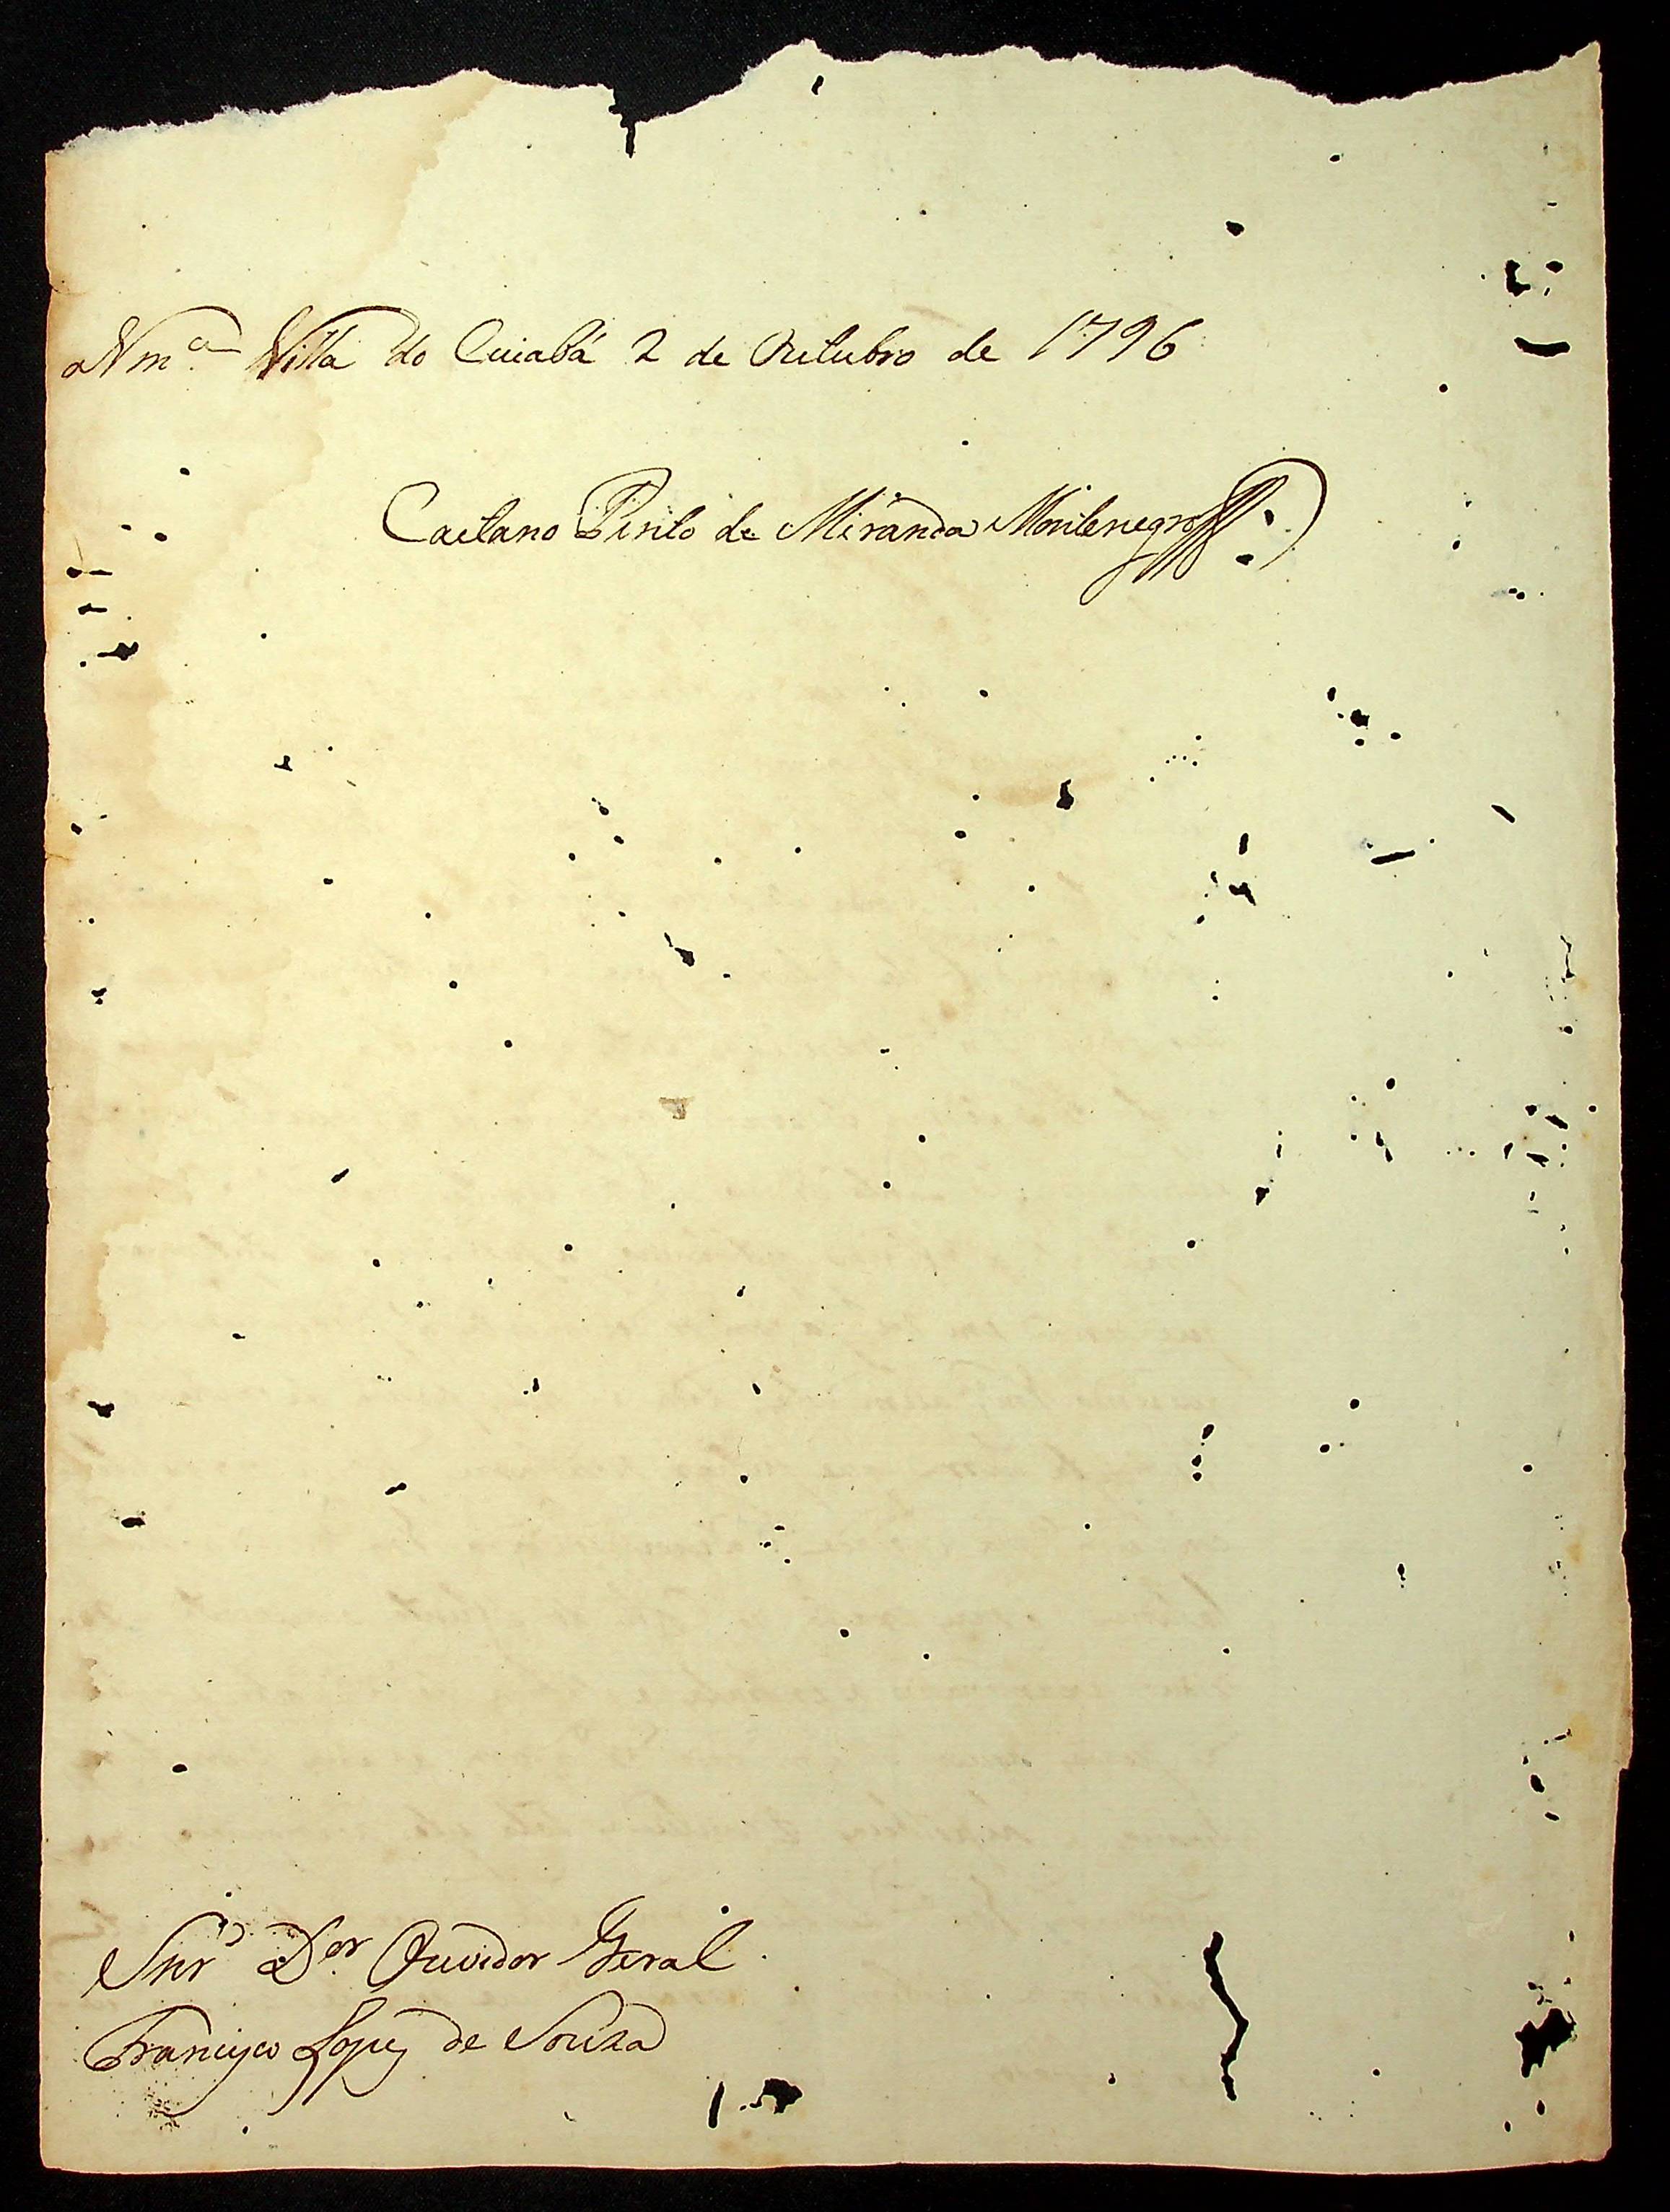 N m.ª Villa do Cuiabá 2 de Outubro de 1796
Caetano Pinto de Miranda Montenegro
Snr' D.or Ouvidor Geral
Francisco Lopes de Souza